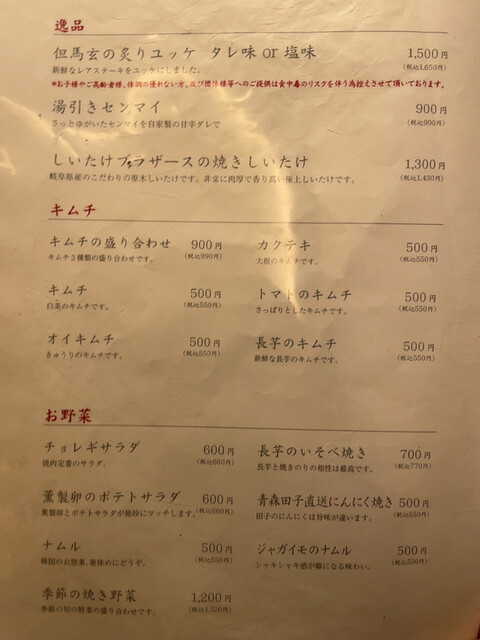 逸品
但馬玄の炙りユッケ タレ味 or 塩味 1,500円
新鮮なレアステーキをユッケにしました。 (税込1,650円)
*お子様やご高齢者様、体調の優れない方、及び団体様等へのご提供は食中毒のリスクを伴う為控えさせて頂いております。
湯引きセンマイ 900円
さっとゆがいたセンマイを自家製の甘辛ダレで (税込990円)
しいたけブラザースの焼きしいたけ 1,300円
岐阜県産のこだわりの原木しいたけです。非常に肉厚で香り高い極上しいたけです。 (税込1,430円)
キムチ
キムチの盛り合わせ 900円
キムチ3種類の盛り合わせです。 (税込990円)
カクテキ 500円
大根のキムチです。 (税込550円)
キムチ 500円
白菜のキムチです。 (税込550円)
トマトのキムチ 500円
さっぱりとしたキムチです。 (税込550円)
オイキムチ 500円
きゅうりのキムチです。 (税込550円)
長芋のキムチ 500円
新鮮な長芋のキムチです。 (税込550円)
お野菜
チョレギサラダ 600円
焼肉定番のサラダ。 (税込660円)
長芋のいそべ焼き 700円
長芋と焼きのりの相性は最高です。 (税込770円)
薫製卵のポテトサラダ 600円
薫製卵とポテトサラダが絶妙にマッチします。 (税込660円)
青森田子直送にんにく焼き 500円
田子のにんにくは旨味が違います。 (税込550円)
ナムル 500円
韓国のお惣菜、箸休めにどうぞ。 (税込550円)
ジャガイモのナムル 500円
シャキシャキ感が癖になる味わい。 (税込550円)
季節の焼き野菜 1,200円
季節の旬の野菜の盛り合わせです。 (税込1,320円)